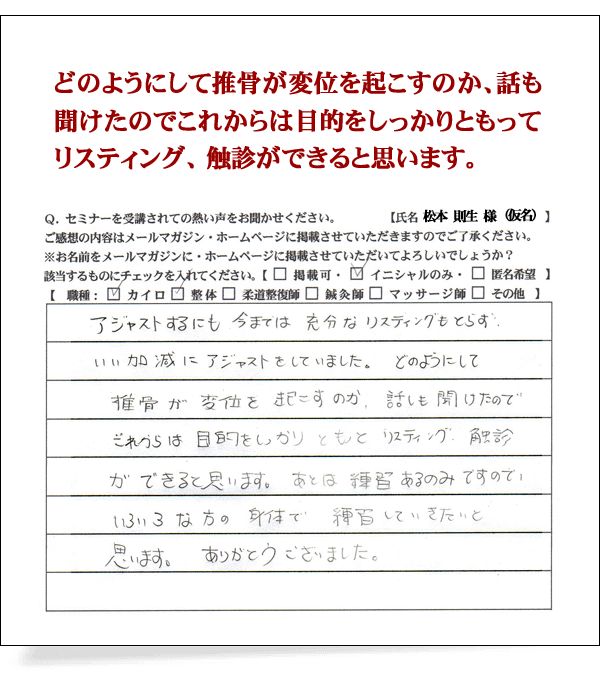 どのようにして推骨が変位を起こすのか、話も
聞けたのでこれからは目的をしっかりともって
リスティング、触診ができると思います。
Q. セミナーを受講されての熱い声をお聞かせください。 【氏名 松本 則生 様 (仮名) 】
ご感想の内容はメールマガジン・ホームページに掲載させていただきますのでご了承ください。
※お名前をメールマガジンに・ホームページに掲載させていただいてよろしいでしょうか？
該当するものにチェックを入れてください。【 □ 掲載可・ ☑ イニシャルのみ・ □ 匿名希望 】
【 職種： ☑ カイロ ☑ 整体 □ 柔道整復師 □ 鍼灸師 □ マッサージ師 □ その他 】
アジャストするにも 今までは 充分な リスティングもとらず、
いい加減に アジャストをしていました。 どのようにして
推骨が 変位を 起こすのか、 話しも 聞けたので
これからは 目的をしっかり ともと リスティング、触診
ができると思います。 あとは 練習 あるのみですので、
いろいろな方の 身体で 練習していきたいと
思います。 ありがとうございました。